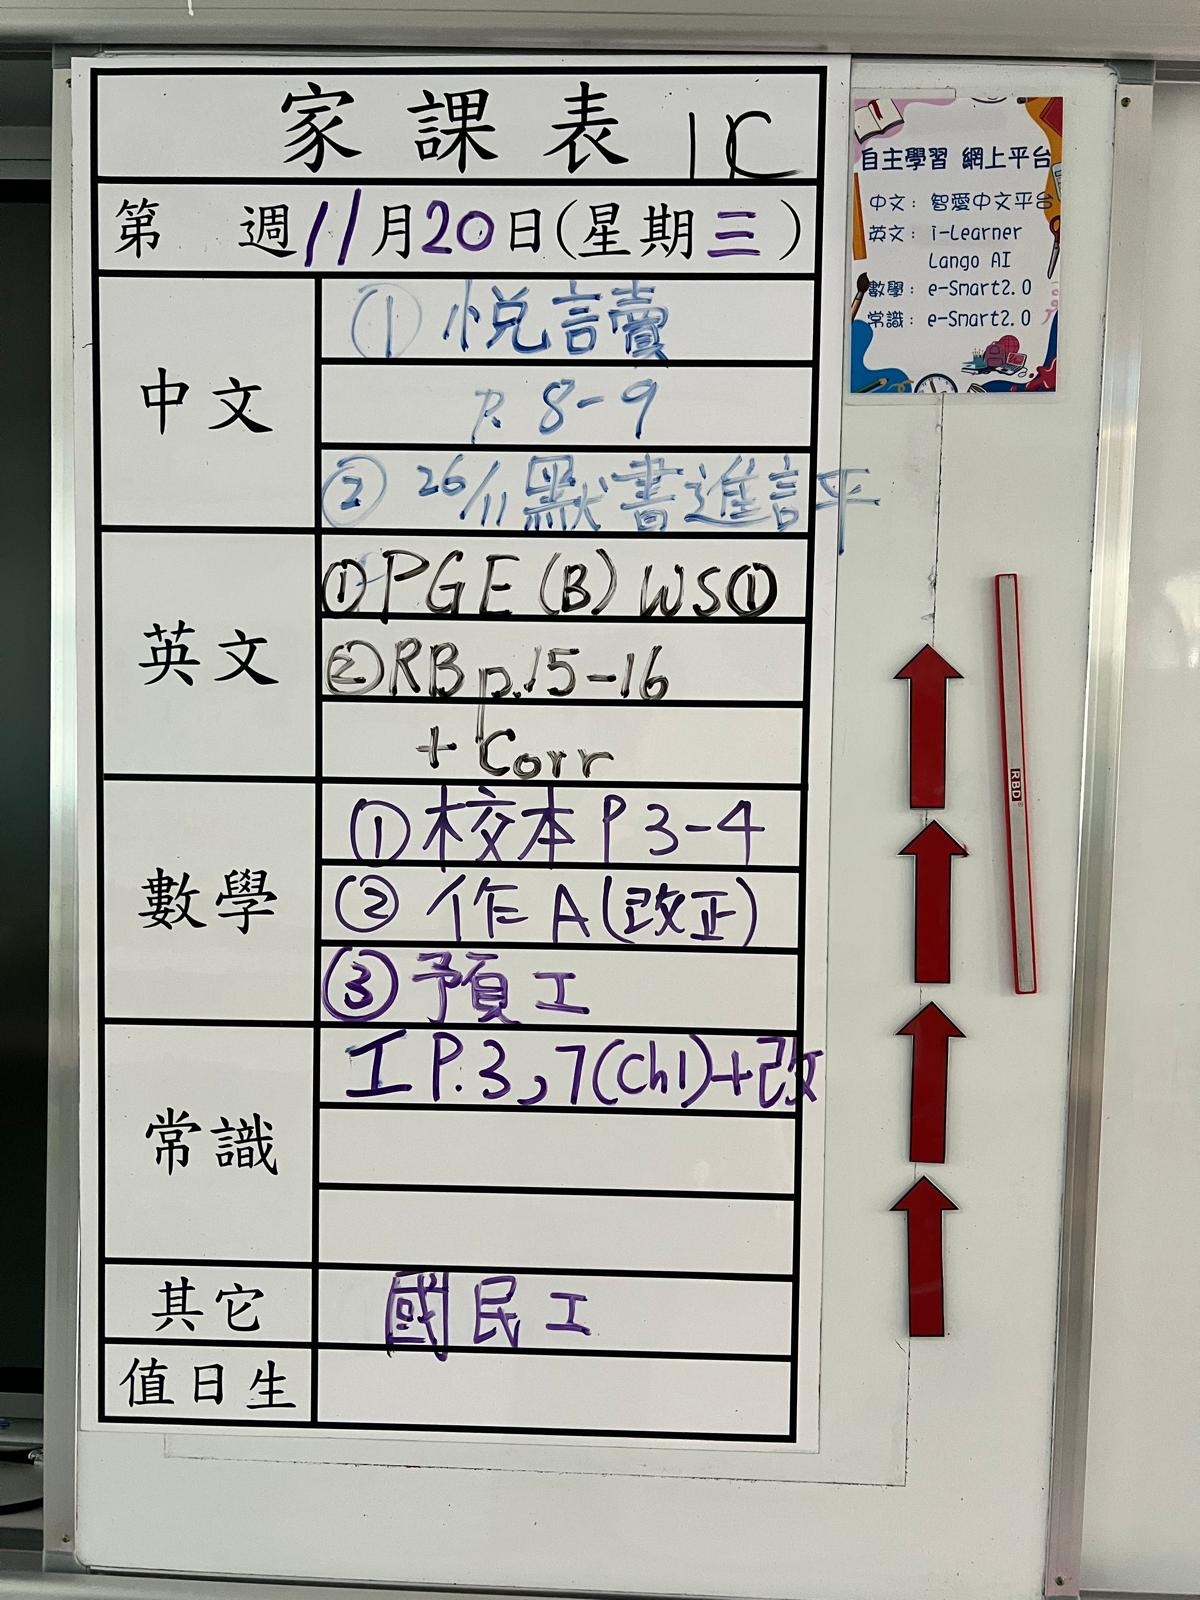 家課表 1C
第 週 11月20日(星期三)
中文
① 悦讀
P. 8-9
② 26/11 默書進評
英文
① PGE (B) WS①
② RB p.15-16
+ Corr
數學
① 校本 P 3-4
② 作 A (改正)
③ 預工
常識
工 P.3,7(Ch1)+改
其它
國民工
值日生
自主學習 網上平台
中文: 智愛中文平台
英文: i-Learner
Lango AI
數學: e-Smart2.0
常識: e-Smart2.0
RBD